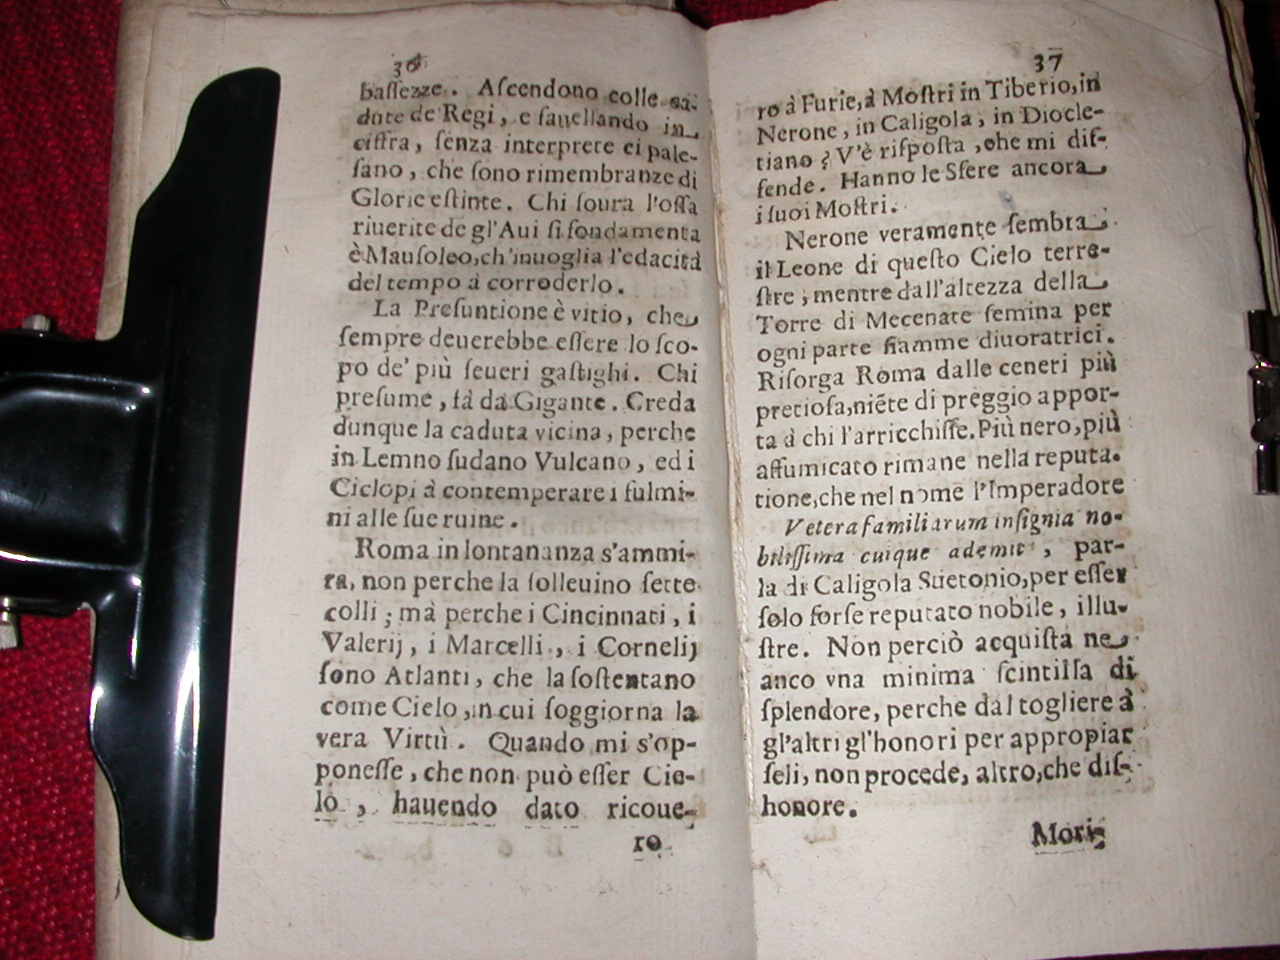 36
baſſezze. Aſcendono colle ca-
dute de Regi, e fauellando in
ciffra, ſenza interprete ci pale-
ſano, che ſono rimembranze di
Glorie eſtinte. Chi ſoura l'oſſa
riuerite de gl'Aui ſi fondamenta
è Mauſoleo, ch'inuoglia l'edacità
del tempo à corroderlo.
La Preſuntione è vitio, che
ſempre deuerebbe eſſere lo ſco-
po de' più ſeueri gaſtighi. Chi
preſume, fà da Gigante. Creda
dunque la caduta vicina, perche
in Lemno ſudano Vulcano, ed i
Ciclopi à contemperare i fulmi-
ni alle ſue ruine.
Roma in lontananza s'ammi-
ra, non perche la ſolleuino ſette
colli; mà perche i Cincinnati, i
Valerij, i Marcelli, i Cornelij
ſono Atlanti, che la ſoſtentano
come Cielo, in cui ſoggiorna la
vera Virtù. Quando mi s'op-
poneſſe, che non può eſſer Cie-
lo, hauendo dato ricoue-
ro
37
ro à Furie, à Moſtri in Tiberio, in
Nerone, in Caligola, in Diocle-
tiano? V'è riſpoſta, che mi dif-
fende. Hanno le Sfere ancora
i ſuoi Moſtri.
Nerone veramente ſembra
il Leone di queſto Cielo terre-
ſtre; mentre dall'altezza della
Torre di Mecenate ſemina per
ogni parte fiamme diuoratrici.
Riſorga Roma dalle ceneri più
pretioſa, niẽte di preggio appor-
ta à chi l'arricchiſſe. Più nero, più
affumicato rimane nella reputa-
tione, che nel nome l'Imperadore
Vetera familiarum inſignia no-
biliſſima cuique ademit, par-
la di Caligola Suetonio, per eſſer
ſolo forſe reputato nobile, illu-
ſtre. Non perciò acquiſta ne
anco vna minima ſcintilla di
ſplendore, perche dal togliere à
gl'altri gl'honori per appropiar
ſeli, non procede, altro, che diſ-
honore.